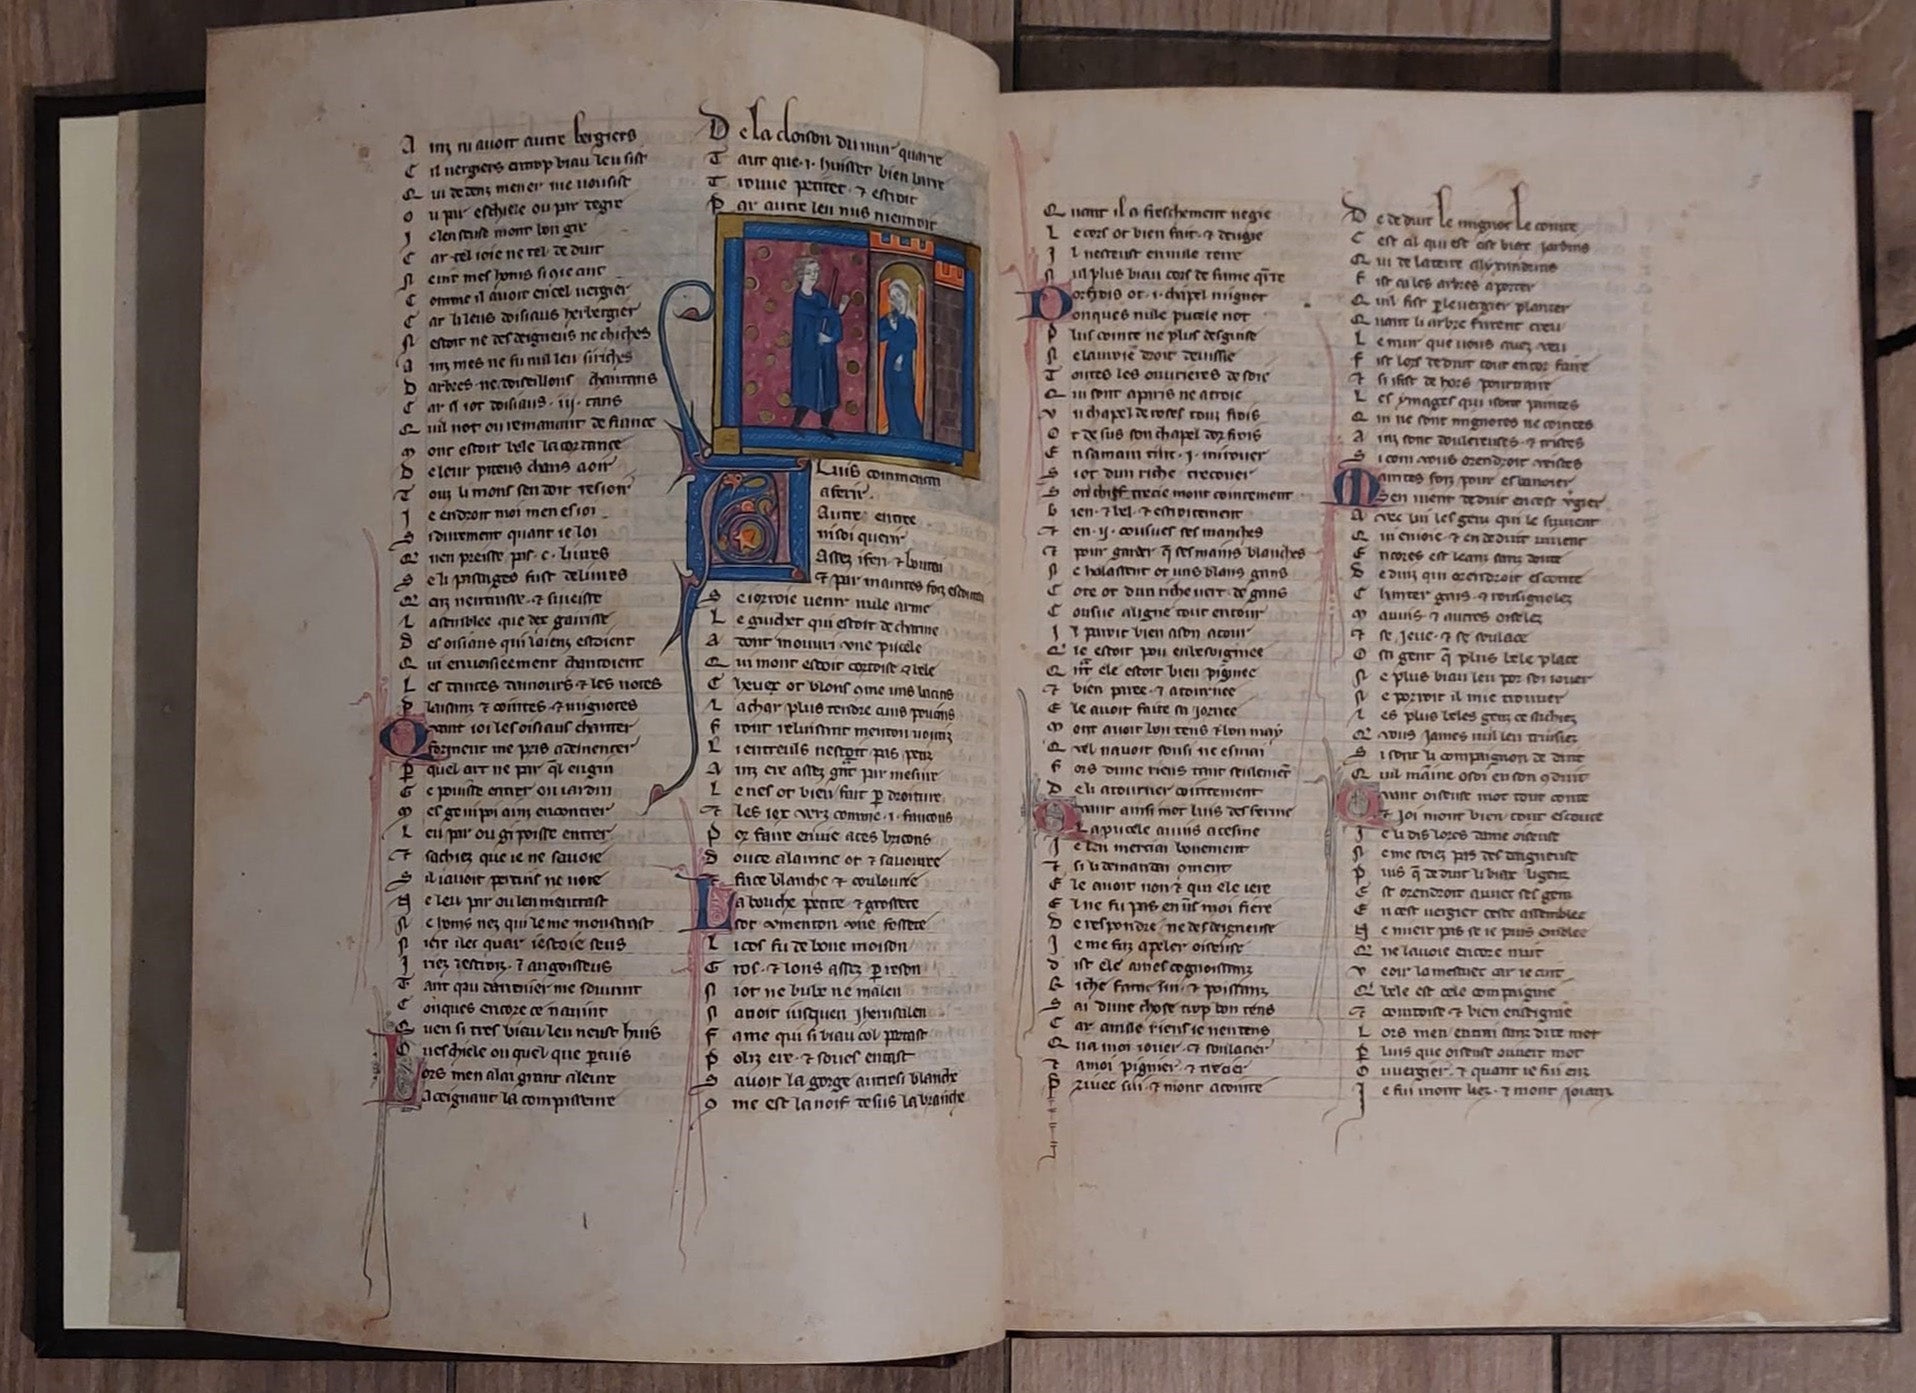 A inz ni avoit autre bergiers
C il vergiers en trop biau leu sist
Q ui dedenz mener me vousist
O u par eschiele ou par degre
J e len seusse mont bon gre
C ar cel joie ne tel deduit
N e vit mes homs si que
C omme il avoit en cel vergier
C ar li leus doisiaus herbergier
N estoit ne desdeigneus ne chiches
A inz mes ne fu nul leu si riches
D arbres ne doiseillons chantans
C ar il iot doisiaus .iij. tans
Q uil not ou remanant de france
M ont estoit bele la cordance
D e leur piteus chans a oir
T ouz li mons sen doit resioir
J e endroit moi men esioi
S i durement quant ie loi
Q uen preisse pas .c. livres
S e li passages fust delivres
Q enz nentrasse et ueisse
L asemblee que dex garisse
D es oisiaus qui laienz estoient
Q ui envoisieement chantoient
L es dances damours et les notes
P laisanz et cointes et mignotes
Quant ioi les oisiaus chanter
Forment me pris a dementer
P quel art ne par ql engin
G e poisse entrer ou iardin
M es ge ni poi ainz encontrer
L eu par ou gi poisse entrer
Et sachiez que ie ne savoie
S il iavoit pertuis ne voie
N e leu par ou len i entrast
N e homs nez qui le me moustrast
N iert ilec quar iestoie seus
T ant quau darrenier me souvint
C onques encore ce navint
Q uen si tres biau leu neust huis
O u eschiele ou quel que ptuis
Lors men alai grant aleure
Aceignant la compasseure
D e la cloison du mur quarre
T ant que .i. huisset bien barre
T rouvé petitet et estroit
P ar autre leu nus nientroit
A Luis commencai
a ferir
Autre entree
ni soi querir
Assez i feri et boutai
Et par maintes foiz escoutai
S e iorroie venir nule arme
L e guichet qui estoit de charme
A dont mouvri une pucele
Q ui mont estoit cortoise et bele
C heveux ot blons come uns bacins
L a char plus tendre cuns poucins
F ront reluisant
L i entreuls nestoit pas petiz
A inz ere assez grant par mesure
L e nes ot bien fait p droiture
Et les iex vers comme .i. faucons
P or faire envie a ces bricons
D ouce alainne ot et savouree
Et face blanche et coulouree
La bouche petite et grossete
Sot ou menton une fossete
L i cos fu de bone moison
G ros et lons assez p reson
N iot ne bube ne malen
N avoit iusquen iherusalen
F ame qui si biau col portast
P oliz ere et soues en tast
S avoit la gorge autresi blanche
O me est la noif desus la branche
Q uant il a freschement negie
L e cors ot bien fait et deugie
J l nesteust en nule terre
N ul plus biau cors de fame qrre
D orfrois ot .i. chapel mignot
Donques nule pucele not
P lus cointe ne plus desguise
N e lauroie droit devisse
T outes les ouvrieres de soie
Q ui sont a paris ne
V n chapel de roses touz frois
O t desus son chapel dorfrois
E n sa main tint .i. mirouer
S iot dun riche trecouer
S on chief trecie mont cointement
B ien et bel et estroitement
Et en .ij. cousues ses manches
Et pour garder q ses mains blanches
N e halassent ot uns blans gans
C ote ot dun riche vert de gans
C ousue a ligne tout entour
I l paroit bien a son atour
Q ele estoit pou enbesoignee
Q nt ele estoit bien pignee
Et bien paree et atournee
E le avoit faite sa iornee
M ont avoit bon tens et bon may
Q uel navoit sousi ne esmai
F ors dune riens tant seulement
D e li atourner cointement
Quant ainsi mot luis desferme
La pucele au vis acesme
J e len merciai bonement
Et si li demandai coment
E le avoit non et qui ele iere
E l ne fu pas envers moi fiere
D e respondre ne desdeigneuse
J e me faz apeler oiseuse
D ist ele a mes cognoissanz
R iche fame sui et poissanz
S ai dune chose trop bon tens
C ar a nule riens ie nentens
Q u a moi iouer et soulacier
Et a moi pignier et trecier
P rivee sui et mont acointe
D e deduit le mignot le cointe
C est cil qui est cist biax iardins
Q ui de la terre alixandrins
F ist ca les arbres aporter
Q uil fist p le vergier planter
Q uant li arbre furent creu
L e mur que vous avez veu
F ist lors deduit tout entor faire
Et si fist dehors pourtraire
L es ymages qui i sont paintes
Q ui ne sont mignotes ne cointes
A inz sont doulereuses et tristes
S i com vous orendroit veistes
Maintes foiz pour esbanoier
Sen vient deduit en cest vgier
A vec lui les genz qui le sivent
Q ui en ioie et en deduit vivent
E ncores est leanz sanz doute
D eduiz qui orendroit escoute
C hanter gais et rousignolez
M auviz et autres oiselez
Et se ieue et se soulace
O sa gent q plus bele place
N e plus biau leu por soi iouer
N e porroit il mie trouver
L es plus beles genz ce sachiez
Q vous iames nul leu truissiez
S i sont li compaignon deduit
Q uil maine o soi en son conduit
Quant oiseuse mot tout conte
Et ioi mont bien tout escoute
J e li dis lores dame oiseuse
N e me soiez pas desdaigneuse
P uis q deduit li biax li genz
E st orendroit avuec ses genz
E n cest vergier ceste assemblee
N e miert pas se ie puis emblee
Q ne la voie encore nuit
V eoir la mestuet car ie cuit
Q bele est cele compaignie
Et courtoise et bien enseignie
L ors men entrai sanz dire mot
P uis que oiseuse ouvert mot
O u vergier et quant ie fui enz
J e fui mont liez et mont ioianz